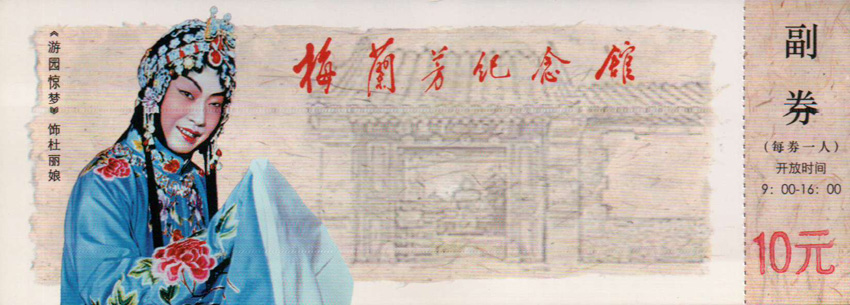 《游园惊梦》饰杜丽娘
梅蘭芳纪念馆
副券
(每券一人)
开放时间
9:00-16:00
10元